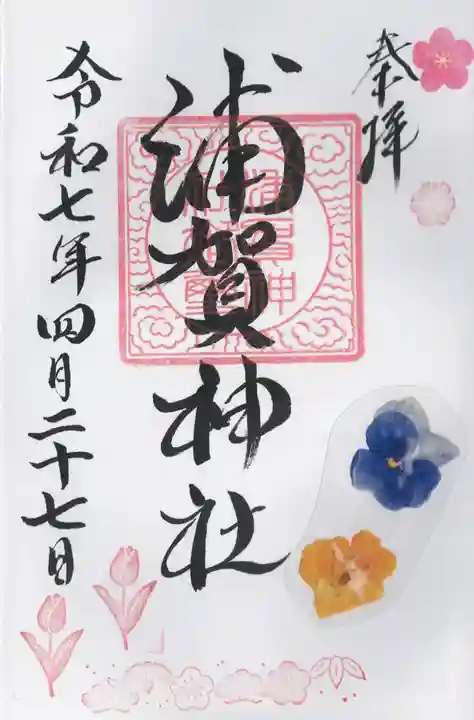 奉拝
浦賀神社
令和七年四月二十七日